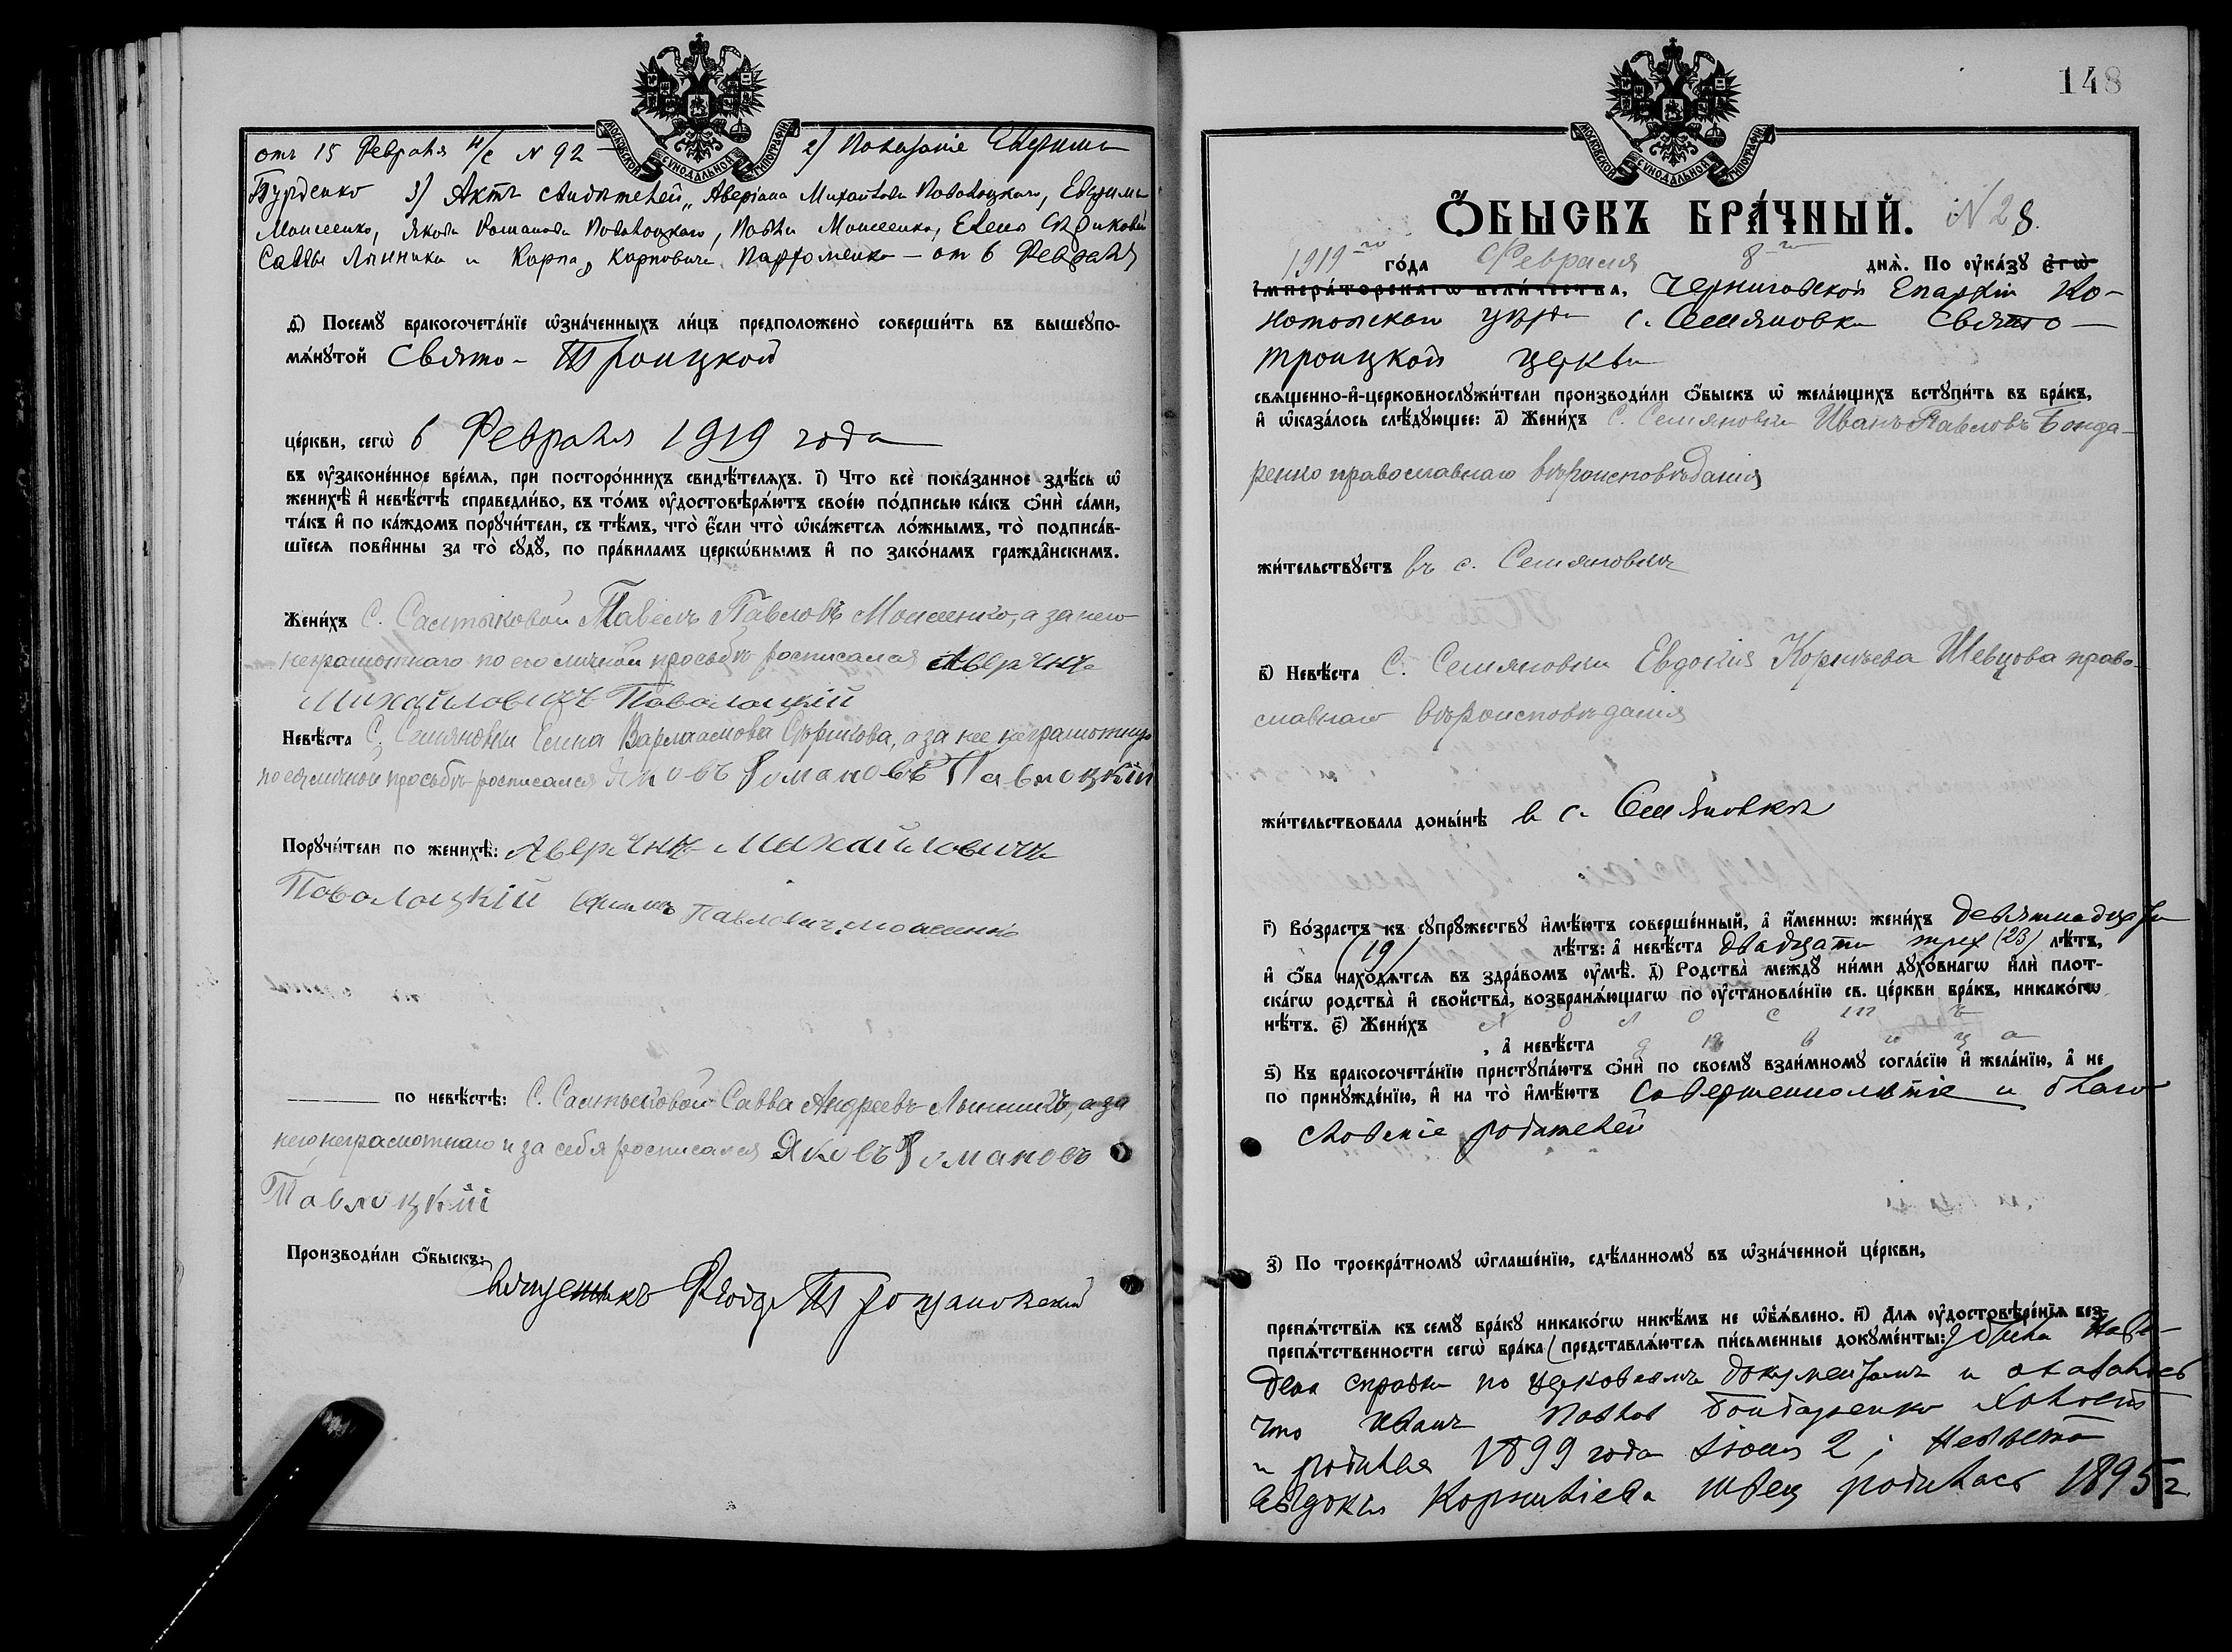 МОСКОВСКОЙ СУНОДАЛЬНОЙ ТИПОГРАФІИ
отъ 15 Февраля н/с N 92 — 2) Показаніе Евфима
Бурденко 3) Актъ свидѣтелей „Аверіана Михайлова Поволоцкаго, Евфима
Моисеенко, Якова Романова Поволоцкаго, Павла Моисеенко, Елены Сѣриковой
Саввы Линника и Карпа Карповича Парфоменко — отъ 6 Февраля
д҃) Посемꙋ̀ бракосочета́нїе ѡ҆зна́ченныхъ ли́цъ предположено̀ соверши́ть въ вышеупо-
мѧ́нꙋтой Свято-Троицкой
це́ркви, сегѡ̀ 6 Февраля 1919 года
въ ᲂу҆законе́нное вре́мѧ, при посторо́ннихъ свидѣ́телѧхъ. і҃) Что всѐ пока́занное здѣ́сь ѡ҆
женихѣ̀ и҆ невѣ́стѣ справедли́во, въ то́мъ ᲂу҆достовѣрѧ́ютъ свое́ю по́дписью ка́къ ѻ҆нѝ са́ми,
та́къ и҆ по ка́ждомъ порꙋчи́тели, съ тѣ́мъ, что̀ є҆́сли что̀ ѡ҆ка́жетсѧ ло́жнымъ, то̀ подписа́в-
шїесѧ пови́нны за то̀ сꙋдꙋ̀, по пра́виламъ церкѡ́внымъ и҆ по зако́намъ гражда́нскимъ.
Жени́хъ С. Салтыковой Павелъ Павловъ Моисеенко, а за него
неграмотнаго по его личной просьбѣ росписался Аверянъ
Михайловичъ Поволоцкій
Невѣ́ста С. Семяновки Елена Варлаамова Сѣрикова, а за нее неграмотную
по ея личной просьбѣ росписался Яковъ Романовъ Павлоцкій
Порꙋчи́тели по женихѣ̀: Аверянъ Михайловичъ
Поволоцкій Ефимъ Павлович Моисенко
по невѣ́стѣ: С. Салтыковой Савва Андреевъ Линникъ, а за
него неграмотнаго и за себя росписался Яковъ Романовъ
Павлоцкій
Производи́ли ѻ҆́быскъ:
Священникъ
148
МОСКОВСКОЙ СУНОДАЛЬНОЙ ТИПОГРАФІИ
Ѻ҆БЫСКЪ БРА́ЧНЫЙ. N 28.
1919-го го́да Февраля 8-го днѧ̀. По ᲂу҆ка́зꙋ є҆гѡ̀
і҆мпера́торскагѡ вели́чества, Черниговской Епархіи Ко-
нотопскаго уѣзда с. Семяновки Свято-
троицкой церкви
свѧще́нно-и҆-церковнослꙋжи́тели производи́ли ѻ҆́быскъ ѡ҆ жела́ющихъ встꙋпи́ть въ бра́къ,
и҆ ѡ҆каза́лось слѣ́дꙋющее: а҃) Жени́хъ С. Семяновки Иванъ Павловъ Бонда-
ренко православнаго вѣроисповѣданія
жи́тельствꙋетъ въ с. Семяновкѣ
в҃) Невѣ́ста С. Семяновки Евдокия Корнильева Шевцова право
славнаго вѣроисповѣданія
жи́тельствовала доны́нѣ в с. Семяновкѣ
г҃) Во́зрастъ къ сꙋпрꙋ́жествꙋ и҆мѣ́ютъ соверше́нный, а҆ и҆́меннѡ: жени́хъ девятнадцати
(19) лѣ́тъ: а҆ невѣ́ста двадцати трех (23) лѣ́тъ,
и҆ ѻ҆́ба нахо́дѧтсѧ въ здра́вомъ ᲂу҆мѣ̀. д҃) Родства̀ междꙋ̀ ни́ми дꙋхо́внагѡ и҆лѝ плот-
ска́гѡ родства̀ и҆ сво́йства̀, возбранѧ́ющагѡ по ᲂу҆становле́нїю св. це́ркви бра́къ, никако́гѡ
нѣ́тъ. є҃) Жени́хъ холостъ
, а҆ невѣ́ста дѣвица
ѕ҃) Къ бракосочета́нїю пристꙋпа́ютъ ѻ҆нѝ по своемꙋ̀ взаи́мномꙋ согла́сїю и҆ жела́нїю, а҆ не
по принꙋжде́нїю, и҆ на то̀ и҆мѣ́ютъ Совершеннолѣтіе и благо
словеніе родителей
з҃) По троекра́тномꙋ ѡ҆глаше́нїю, сдѣ́ланномꙋ въ ѡ҆зна́ченной це́ркви,
препѧ́тствїѧ къ семꙋ̀ бра́кꙋ никако́гѡ никѣ́мъ не ѡ҆б̾ѧ́влено. и҃) Длѧ ᲂу҆достовѣре́нїѧ без-
препѧ́тственности сегѡ̀ бра́ка представлѧ́ютсѧ пи́сьменные докꙋме́нты: была наве-
дена справка по церковнымъ документамъ и оказалось
что Иванъ Павлов Бондаренко холостъ
и родился 1899 года Іюня 2; Невѣста
Евдокія Корнилiева Швец родилась 1895 г